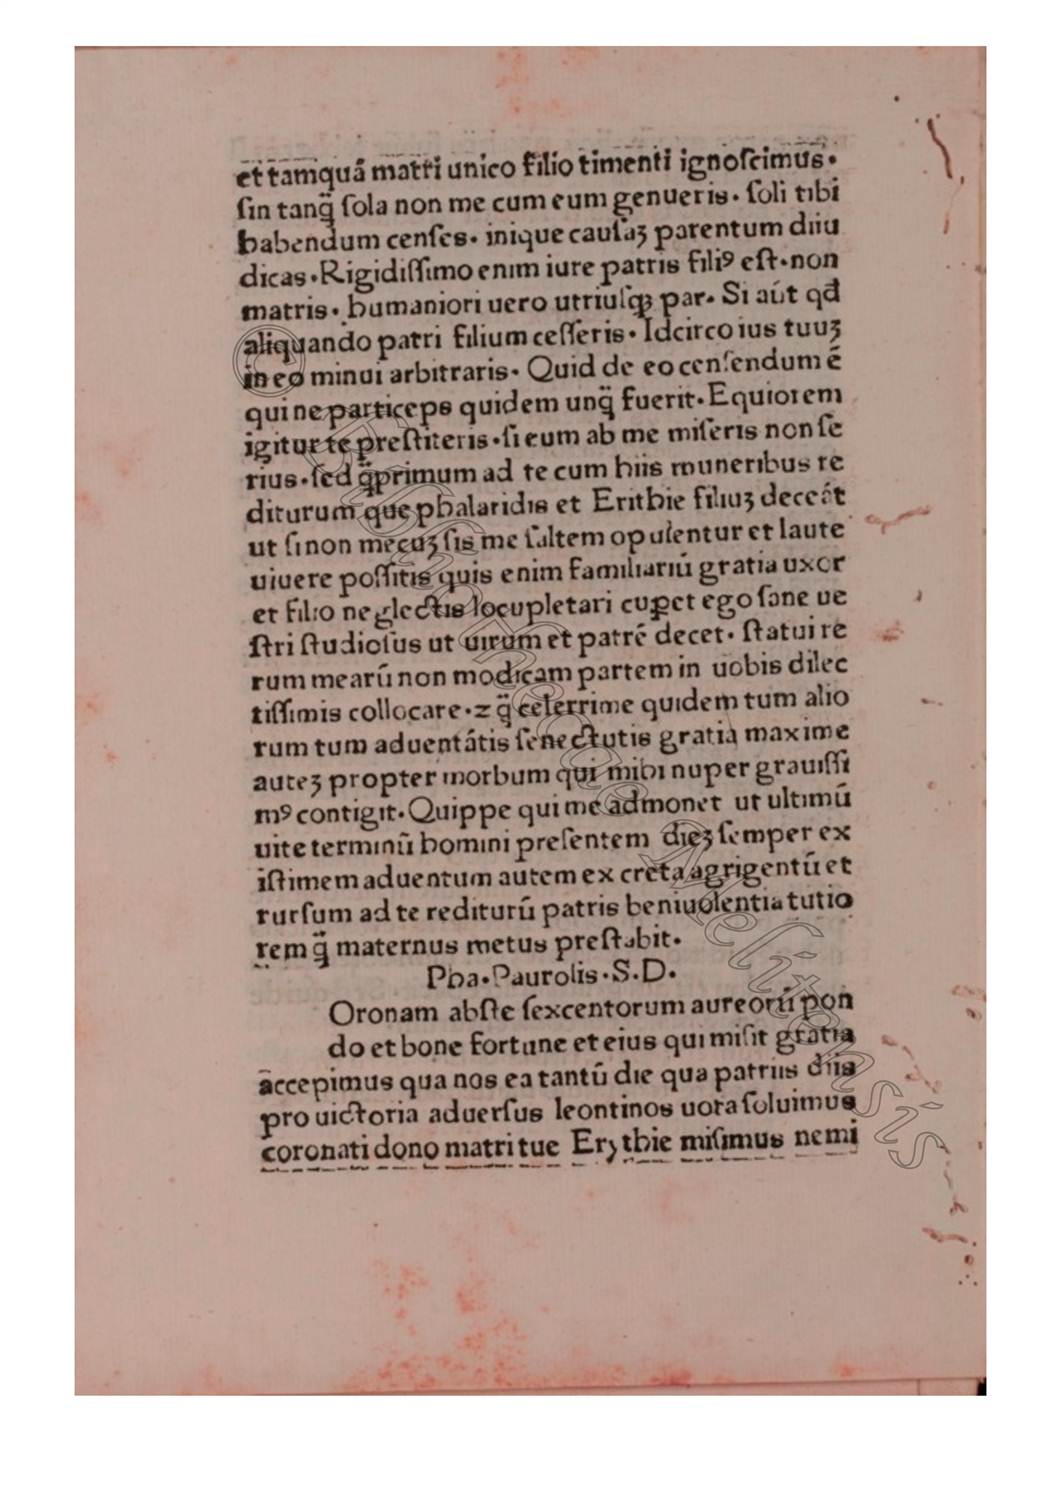 et tamquā matri unico filio timenti ignoſcimus·
ſin tanq̄ ſola non me cum eum genueris· ſoli tibi
habendum cenſes· inique cauſaꝫ parentum diiu
dicas·Rigidiſſimo enim iure patris filiꝰ eſt·non
matris· humaniori uero utriuſqꝫ par· Si aūt qđ
aliquando patri filium ceſſeris· Idcirco ius tuuꝫ
in eo minui arbitraris· Quid de eo cenſendum ē
qui ne particeps quidem unq̄ fuerit·Equiorem
igitur te preſtiteris·ſi eum ab me miſeris non ſe
rius·ſed q̄primum ad te cum hiis muneribus re
diturum que phalaridis et Erithie filiuꝫ deceāt
ut ſi non mecuꝫ ſis me ſaltem opulentur et laute
uiuere poſſitis quis enim familiariū gratia uxor
et filio neglectis locupletari cuꝑet ego ſane ue
ſtri ſtudioſus ut uirum et patrē decet· ſtatui re
rum mearū non modicam partem in uobis dilec
tiſſimis collocare·z q̄ celerrime quidem tum alio
rum tum aduentātis ſenectutis gratia maxime
auteꝫ propter morbum qui mihi nuper grauiſſi
mꝰ contigit·Quippe qui me admonet ut ultimū
uite terminū homini preſentem dieꝫ ſemper ex
iſtimem aduentum autem ex creta agrigentū et
rurſum ad te rediturū patris beniuolentia tutio
rem q̄ maternus metus preſtabit·
Pha·Paurolis·S.D·
Oronam abſte ſexcentorum aureorū pon
do et bone fortune et eius qui miſit gratia
accepimus qua nos ea tantū die qua patriis diis
pro uictoria aduerſus leontinos uota ſoluimus
coronati dono matri tue Erythie miſimus nemi
© Bibliothecae Melitensis